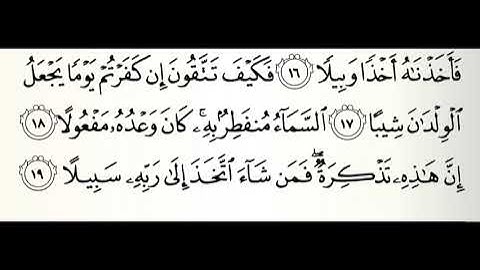 فَأَخَذْنَٰهُ أَخْذًا وَبِيلًا ١٦ فَكَيْفَ تَتَّقُونَ إِن كَفَرْتُمْ يَوْمًا يَجْعَلُ
ٱلْوِلْدَٰنَ شِيبًا ١٧ ٱلسَّمَآءُ مُنفَطِرٌۢ بِهِۦ ۚ كَانَ وَعْدُهُۥ مَفْعُولًا ١٨
إِنَّ هَٰذِهِۦ تَذْكِرَةٌ ۖ فَمَن شَآءَ ٱتَّخَذَ إِلَىٰ رَبِّهِۦ سَبِيلًا ١٩